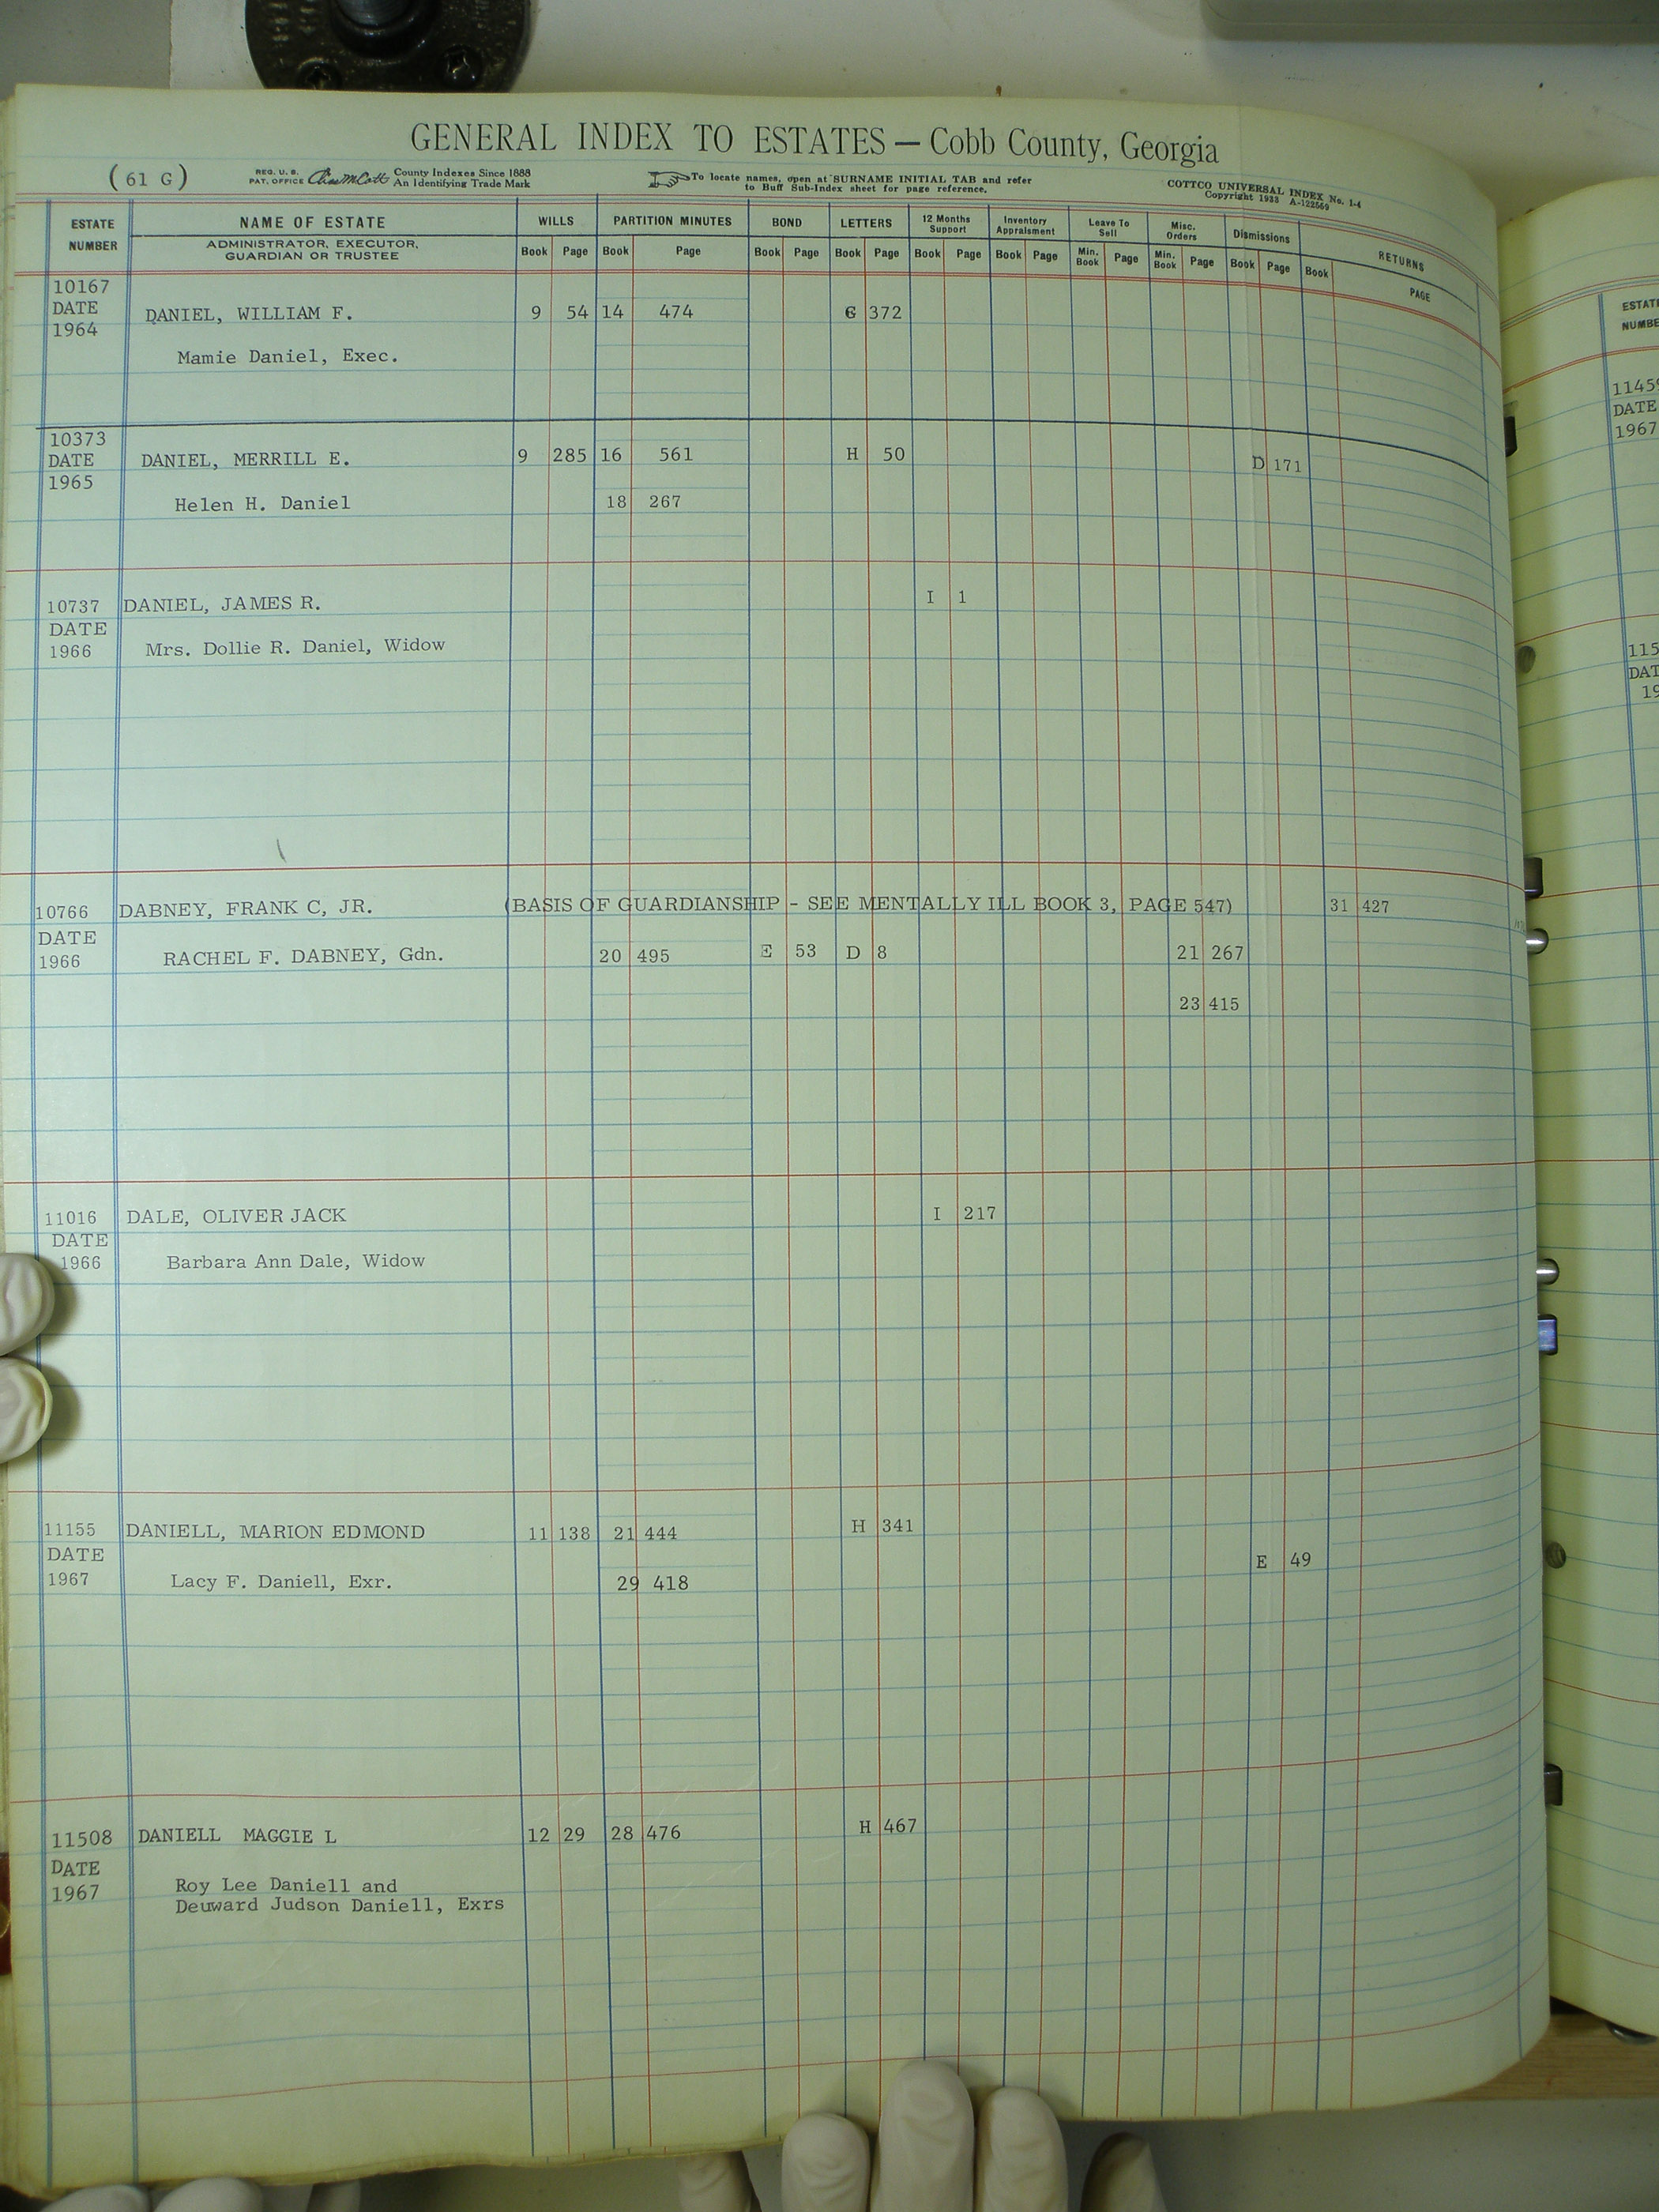 GENERAL INDEX TO ESTATES — Cobb County, Georgia
(61 G)
REG. U. S. PAT. OFFICE
County Indexes Since 1888
An Identifying Trade Mark
To locate names, open at SURNAME INITIAL TAB and refer
to Buff Sub-Index sheet for page reference.
COTTCO UNIVERSAL INDEX No. 1-4
Copyright 1933 A-122569
ESTATE NUMBER
NAME OF ESTATE
ADMINISTRATOR, EXECUTOR,
GUARDIAN OR TRUSTEE
WILLS PARTITION MINUTES BOND LETTERS 12 Months Support Inventory Appraisment Leave To Sell Misc. Orders Dismissions RETURNS
Book Page Book Page Book Page Book Page Book Page Book Page Min. Book Page Min. Book Page Book Page Book PAGE
10167
DATE DANIEL, WILLIAM F. 9 54 14 474 G 372
1964
Mamie Daniel, Exec.
10373
DATE DANIEL, MERRILL E. 9 285 16 561 H 50 D 171
1965
Helen H. Daniel 18 267
10737 DANIEL, JAMES R. I 1
DATE
1966 Mrs. Dollie R. Daniel, Widow
10766 DABNEY, FRANK C, JR. (BASIS OF GUARDIANSHIP - SEE MENTALLY ILL BOOK 3, PAGE 547) 31 427
DATE
1966 RACHEL F. DABNEY, Gdn. 20 495 E 53 D 8 21 267
23 415
11016 DALE, OLIVER JACK I 217
DATE
1966 Barbara Ann Dale, Widow
11155 DANIELL, MARION EDMOND 11 138 21 444 H 341
DATE E 49
1967 Lacy F. Daniell, Exr. 29 418
11508 DANIELL MAGGIE L 12 29 28 476 H 467
DATE
1967 Roy Lee Daniell and
Deuward Judson Daniell, Exrs
ESTATE
NUMBE
1145
DATE
1967
115
DAT
19